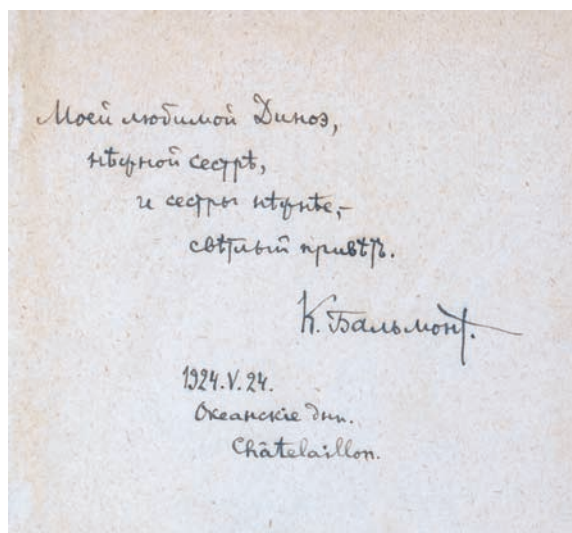 Моей любимой Диноэ,
нѣжной сестрѣ,
и сестры нѣжнѣе,-
свѣтлый привѣтъ.
К. Бальмонт.
1924.V.24.
Океанскіе дни.
Châtelaillon.